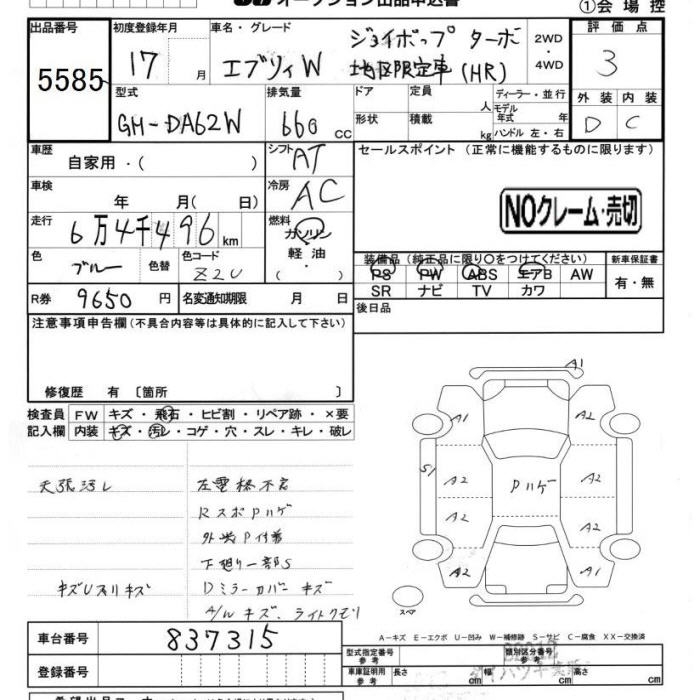 オークション出品申込書
①会場控
出品番号 初度登録年月 車名・グレード 2WD・4WD 評価点
5585 17 月 エブリィW ジョイポップ ターボ 地区限定車(HR) 3
型式 排気量 ドア 定員 人 ディーラー・並行 外装 内装
GH-DA62W 660 cc 形状 積載 kg モデル年式 年 ハンドル 左・右 D C
車歴 自家用・( ) シフト AT セールスポイント (正常に機能するものに限ります)
車検 年 月( 日) 冷房 AC
NOクレーム・売切
走行 6万4千496 km 燃料 ガソリン 軽油・( )
色 ブルー 色替 色コード Z2U
装備品(純正品に限り○をつけてください) 新車保証書
PS PW ABS エアB AW 有・無
SR ナビ TV カワ
R券 9650 円 名変通知期限 月 日 後日品
注意事項申告欄(不具合内容等は具体的に記入して下さい)
修復歴 有 〔箇所 〕
検査員 FW キズ・飛石・ヒビ割・リペア跡・×要
記入欄 内装 キズ・汚レ・コゲ・穴・スレ・キレ・破レ
天張汚レ
キズUスリキズ
左電格不良
RスポPハゲ
外装P付着
下廻り一部S
Dミラーカバーキズ
A/Wキズ、ライトクモリ
A1
A1 A2
S1
A2 Pハゲ A2
A2 A2
A2 A1
スペア
A-キズ E-エクボ U-凹み W-補修跡 S-サビ C-腐食 XX-交換済
車台番号 837315
登録番号
型式指定番号 参考 類別区分番号 参考
車庫証明用 参考 長さ cm 幅 cm 高さ cm